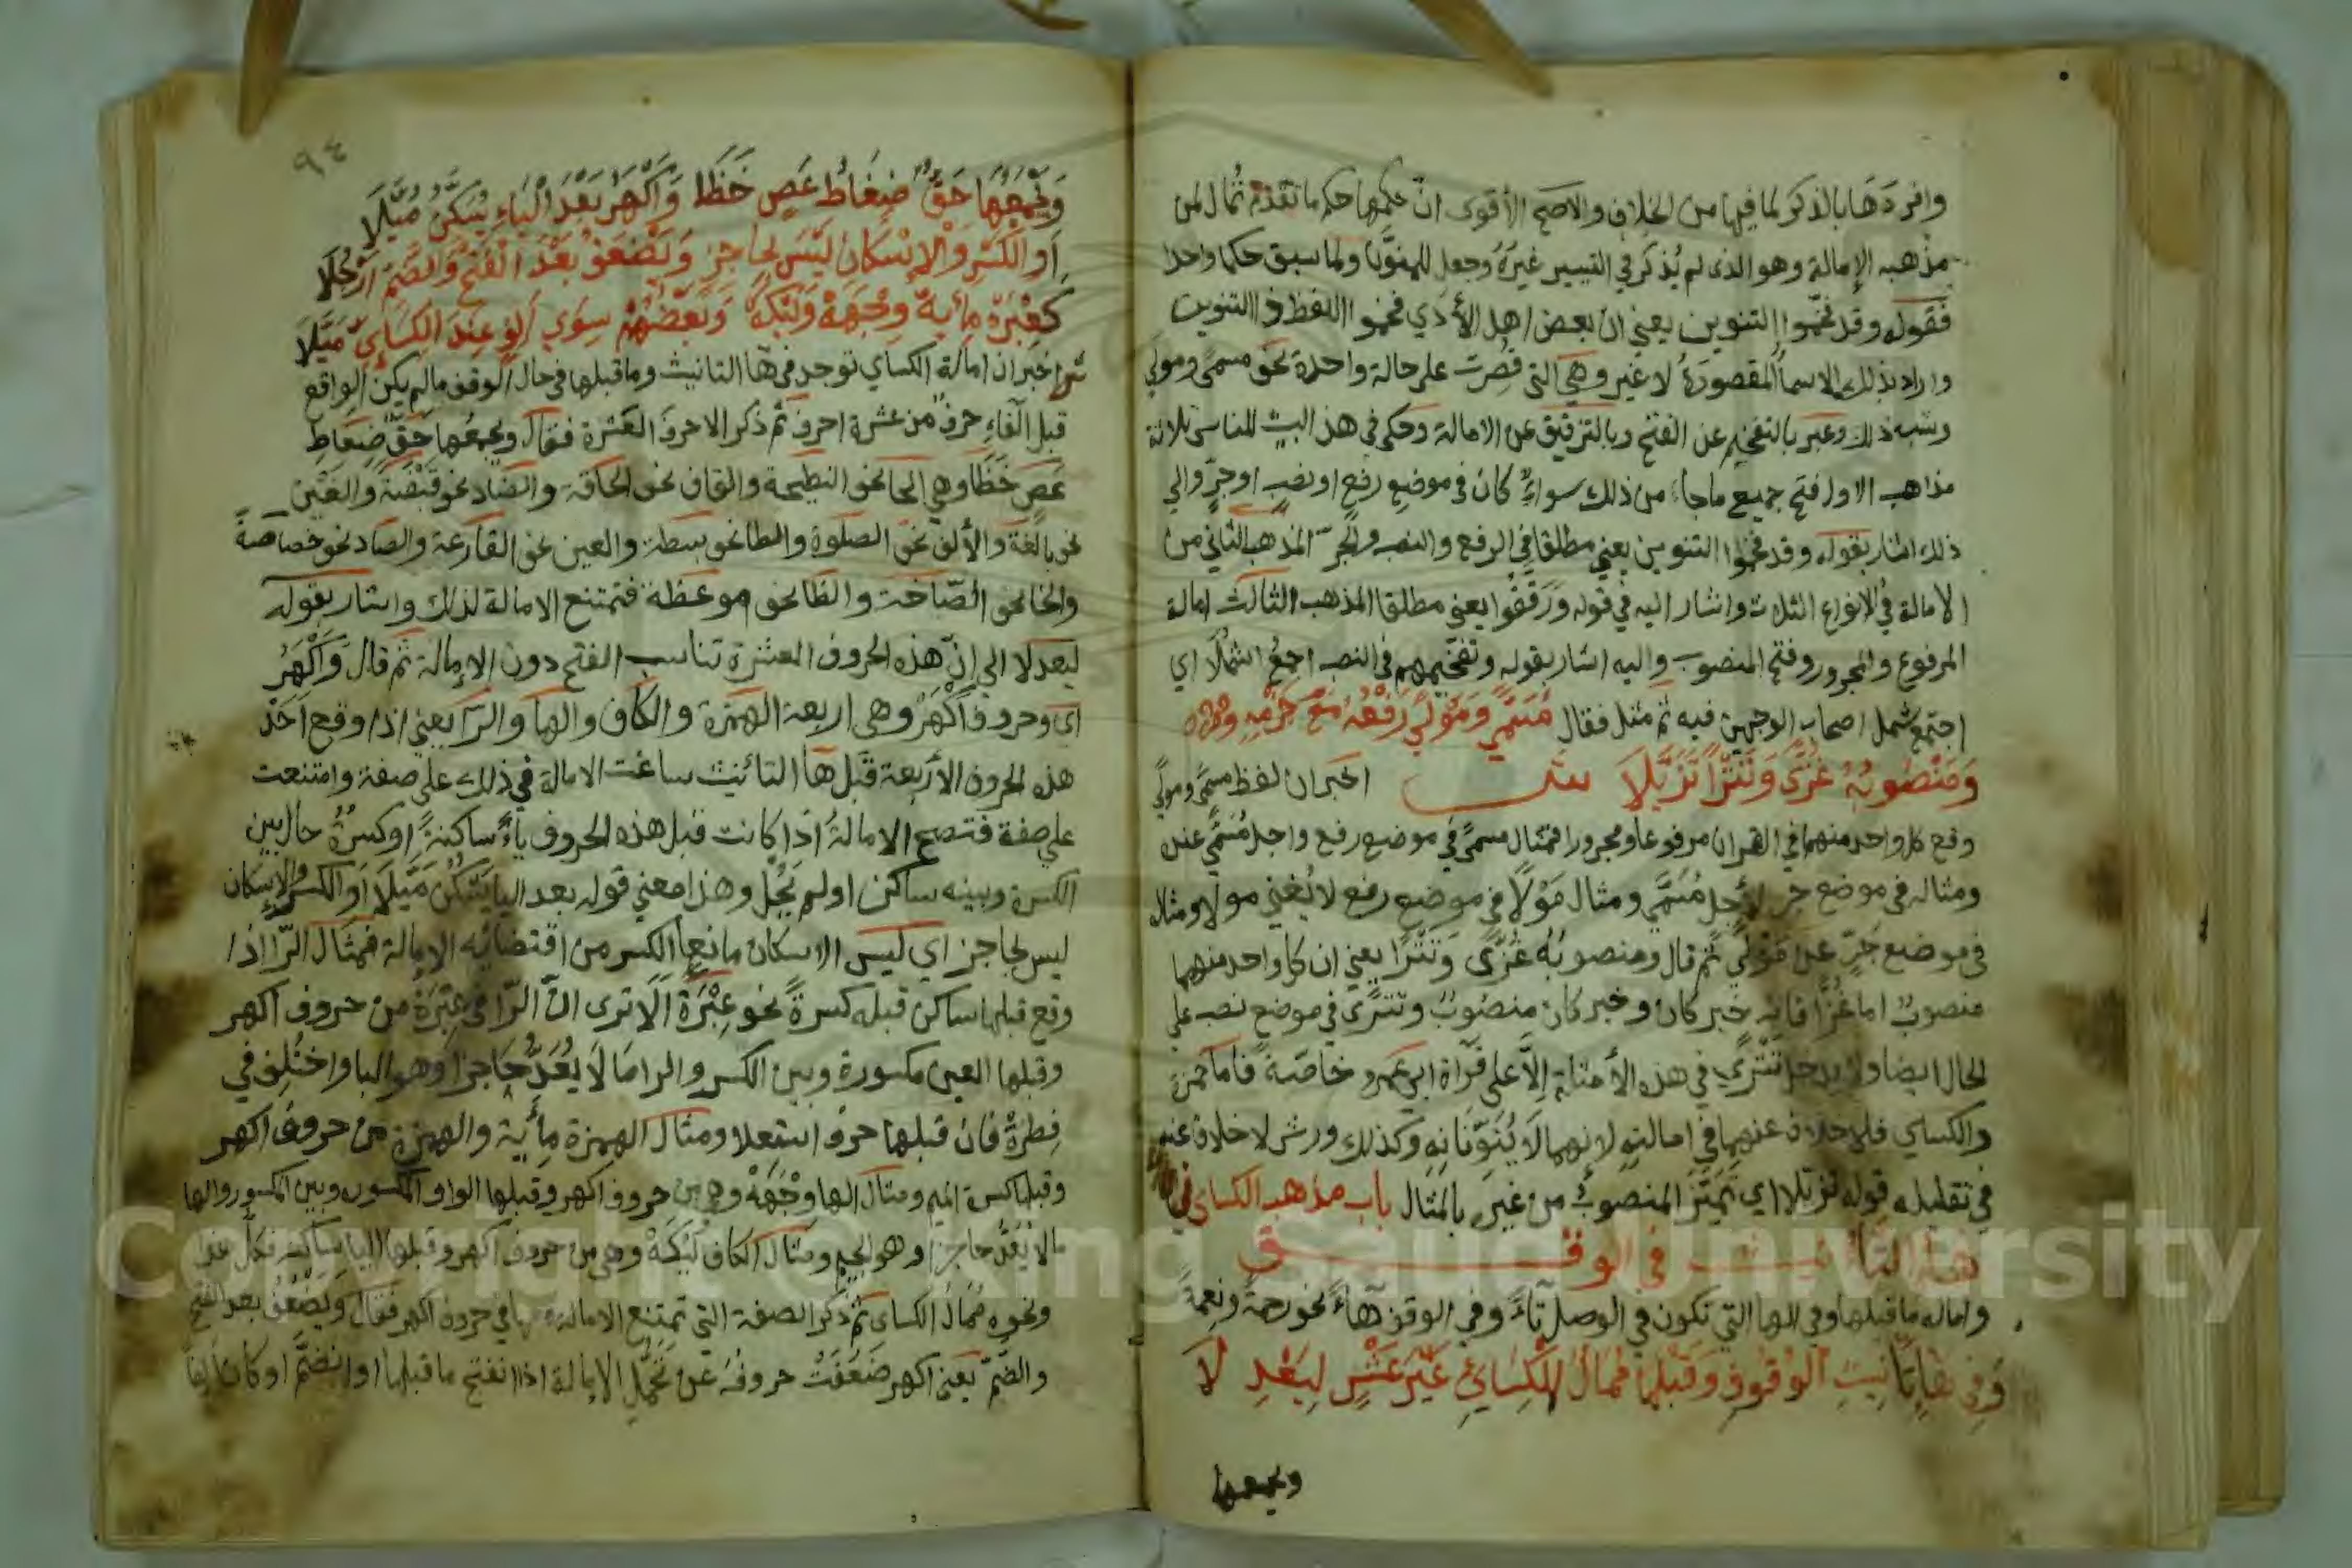 وافردها بالذكر لما فيها من الخلاف والاصح الأقوى ان حكمها حكم ما تقدم ثمال لمن
مذهبه الإمالة وهو الذى لم يُذكر في التيسير غيرَهُ وجعل للمنوَّن ولما سبق حكما واحدا
فقوله وقد فخّموا التنوين يعني ان بعض اهل الأدي فخموا اللفظ ذا التنوين
واراد بذلك الاسماَ المقصورَةُ لا غير وهي التى قُصِرت على حالة واحدة نحو مسمًى ومولًى
وشبه ذلك وعبر بالتفخيم عن الفتح وبالترقيق عن الامالة وحكى في هذا البيت للناس ثلاثة
مذاهب الاول فتح جميع ماجاء من ذلك سواءً كان فى موضع رفع او نصب او جرٍّ والي
ذلك اشار بقوله وقد فخموا التنوين يعني مطلقا في الرفع والنصب والجر المذهب الثاني من
الامالة في الانواع الثلاث واشار اليه في قوله ورَقَّقُوا يعني مطلقا المذهب الثالث امالة
المرفوع والمجرور وفتح المنصوب واليه اشار بقوله وتفخيمهم فى النصب اجمعُ اشملًا اي
اجتمع شمل اصحاب الوجهين فيه ثم مثل فقال مُسَمًّى وَمَوْلًى رَفْعُهُ مَعْ جَرِّهِ
وَمَنْصُوبُهُ غُزًّى وَتَتْرًا تَزَيَّلَا ش اخبر ان لفظ مسمًى ومولًى
وقع كل واحد منهما في القران مرفوعا ومجرورا فمثال مسمًى في موضع رفع واجل مُسَمًّى عنده
ومثاله فى موضع جر لأجل مُسَمًّى ومثال مَوْلًا في موضع رفع لا يُغني مولا ومثاله
في موضع جَرّ عن مَوْلًى ثم قال ومنصوبُهُ غُزًّى وَتَتْرًا يعني ان كل واحد منهما
منصوبٌ اما غُزًّا فانه خبر كان وخبر كان منصوبٌ وتَتْرًى في موضع نصب على
الحال ايضا ولا يدخل تَتْرًى في هذه الأمثلة إلاّ على قرآة ابى عمرو خاصّة فاما حمزة
والكساي فلا خلاف عنهما في امالته لانهما لا يُنوّنانِه وكذلك ورش لا خلاف عنه
في تقليله قوله تزيلا اي تميّزَ المنصوبُ من غيره بالمثال باب مذهب الكساى في
هاء التأنيث في الوقف
واماله ما قبلها وفي الها التي تكون في الوصل تاءً وفي الوقف هاءً نحو رحمة ونعمة
وَفِي هَاءِ تَأنِيثِ الْوُقُوفِ وَقَبْلَهَا مُمَالُ الْكِسَائِي غَيْرَ عَشْرٍ لِيَعْدِ لَا
ويجمعها
٩٤
وَيَجْمَعُهَا حَقٌّ ضِغَاطُ عَصٍ خَظَا وَأَكْهَرُ بَعْدَ الْيَاءِ يَسْكُنُ مُيِّلَا
اَوِ الْكَسْرِ وَالْاِسْكَانُ لَيْسَ بِحَاجِزٍ وَيَضْعُفُ بَعْدَ الْفَتْحِ وَالضَّمِّ اَرْجُلَا
كَعِبْرَهْ مِأْيَهْ وِجْهَهْ وَلَيْكَهْ وَبَعْضُهُمْ سِوَى اَلِفٍ عِنْدَ الْكِسَاىِّ مَيَّلَا
ش اخبر ان امالة الكساي توجد في هآ التانيث وما قبلها في حال الوقف مالم يكن الواقع
قبل الهاءِ حرف من عشرة احرف ثم ذكر الاحرف العشرة فقال ويجمعها حَقٌّ ضِغَاطِ
عَصٍ خَظَا وهي الحا نحو النطيحة والقاف نحو الحاقة والضاد نحو قبْضَة والغين
نحو بالغة والألف نحو الصلوة والطا نحو بسطة والعين نحو القارعة والصاد نحو خصاصةً
والخا نحو الصّاخة والظا نحو موعظة فتمتنع الامالة لذلك واشار بقوله
ليعدلا الي انّ هذه الحروف العشرة تناسب الفتح دون الإمالة ثم قال وَأَكْهَرُ
اي وحروف أَكْهَرُ وهى اربعة الهمزة والكاف والها والرّا يعني اذا وقع احد
هذه الحروف الأربعة قبل هآ التانيث ساغت الامالة في ذلك على صفة وامتنعت
على صفة فتصح الامالةُ اذا كانت قبل هذه الحروف ياءٌ ساكنةٌ او كسرةٌ حال بين
الكسرة وبينه ساكن اولم يَحُل وهذا معني قوله بعد اليا يَسْكُن مُيِّلَا اَوِ الكسر والإسكان
ليس بحاجز اي ليس الاسكان مانعا الكسر من اقتضائه الإمالة فمثال الرّا اذا
وقع قبلها ساكن قبله كسرةً نحو عِبْرَة اَلاَ ترى انّ الرّا في عِبْرَة من حروف اكهر
وقبلها العين مكسورة وبين الكسر والرا مَا لاَ يُعَدُّ حَاجزا وَهو البا واختُلِف في
فِطرةٌ فان قبلها حرف استعلا ومثال الهمزة مِأْية والهمزة من حروف اكهر
وقبلها كسرة الميم ومثال الها وِجْهَهْ وهي من حروف اكهر وقبلها الواو المكسوره وبين المكسور والها
مالا يُعَدُّ حاجزا وهو الجيم ومثال الكاف لَيْكَهْ وهي من حروف اكهر وقبلها اليا ساكنه فكل هذا
ونحوه مُمَالُ الكساى ثم ذكر الصفة التي تمتنع الامالة في حروف اكهر فقال وَيَضْعُفُ بعد الفتح
والضَّمّ يعني اكهر ضَعُفَتْ حروفُه عن تَحَمُّلِ الإمالة اذا انفتح ما قبلها او انضمَّ او كان الفا
Copyright © King Saud University